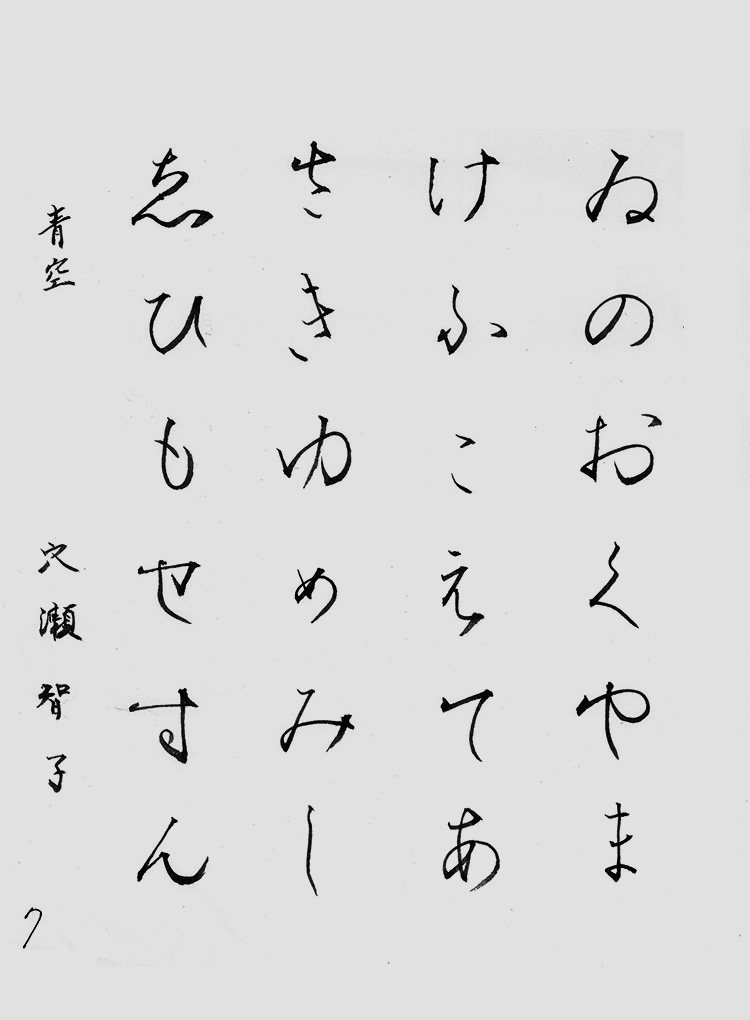 ゐのおくやま
けふこえてあ
さきゆめみし
ゑひもせすん
青空 穴瀬智子